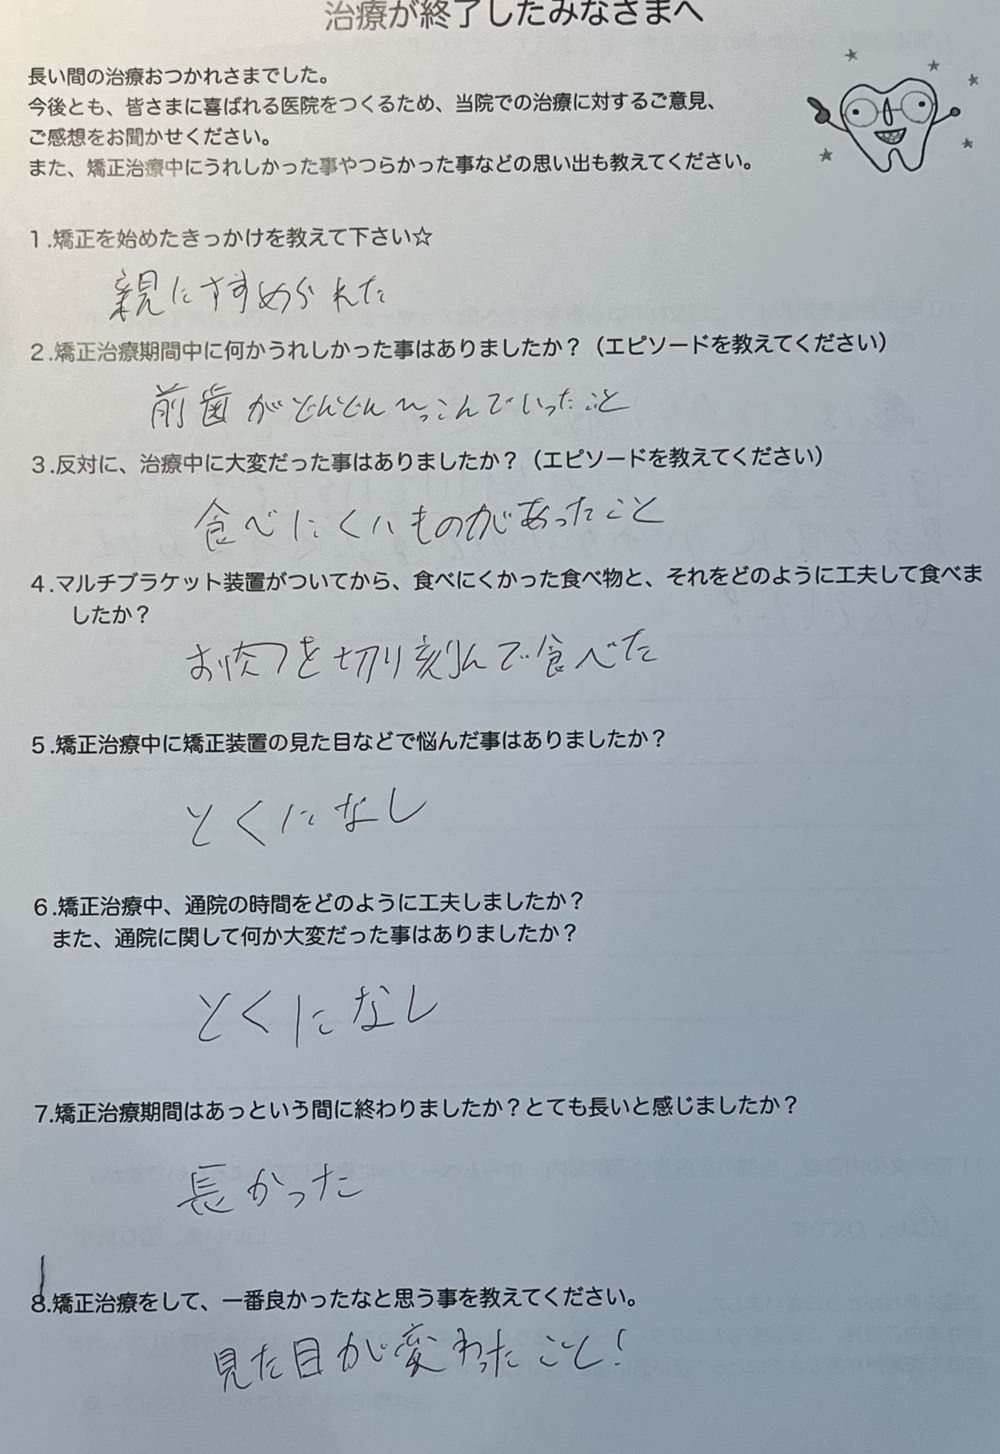 治療が終了したみなさまへ
長い間の治療おつかれさまでした。
今後とも、皆さまに喜ばれる医院をつくるため、当院での治療に対するご意見、
ご感想をお聞かせください。
また、矯正治療中にうれしかった事やつらかった事などの思い出も教えてください。
1.矯正を始めたきっかけを教えて下さい☆
親にすすめられた
2.矯正治療期間中に何かうれしかった事はありましたか？（エピソードを教えてください）
前歯がどんどんひっこんでいったこと
3.反対に、治療中に大変だった事はありましたか？（エピソードを教えてください）
食べにくいものがあったこと
4.マルチブラケット装置がついてから、食べにくかった食べ物と、それをどのように工夫して食べま
したか？
お肉を切り刻んで食べた
5.矯正治療中に矯正装置の見た目などで悩んだ事はありましたか？
とくになし
6.矯正治療中、通院の時間をどのように工夫しましたか？
また、通院に関して何か大変だった事はありましたか？
とくになし
7.矯正治療期間はあっという間に終わりましたか？とても長いと感じましたか？
長かった
8.矯正治療をして、一番良かったなと思う事を教えてください。
見た目が変わったこと！